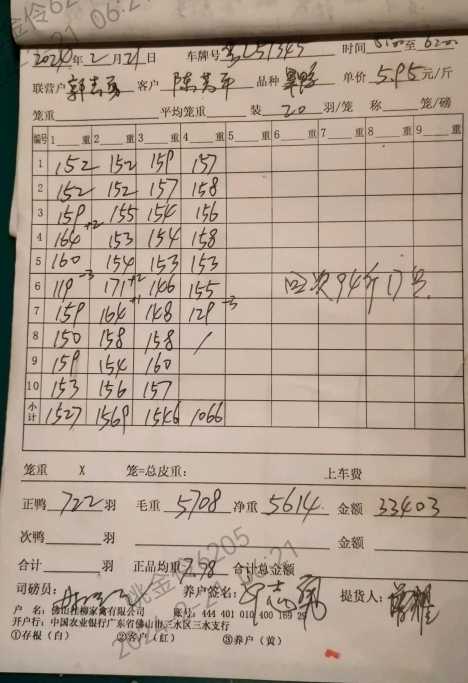 2024年2月21日 车牌号 时间 至6200
联营户 郭志勇 客户 品种 单价 5.95元/斤
笼重 平均笼重 装 20 羽/笼 称 笼/磅
编号 1 重 2 重 3 重 4 重 5 重 6 重 7 重 8 重 9 重
1 152 152 159 157
2 152 152 157 158
3 159 +2 155 154 156
4 164 153 154 158
5 160 154 153 153
6 119 -3 171 +2 146 155 四次94斤17号
7 159 164 +1 148 129 -3
8 150 158 158 /
9 159 154 160
10 153 156 157
小计 1527 1569 1546 1066
笼重 X 笼=总皮重: 上车费
正鸭 722 羽 毛重 5708 净重 5614 金额 33403
次鸭 羽 金额
合计 羽 正品均重 7.78 合计总金额
司磅员: 养户签名: 提货人:
户 名: 佛山 柳家禽有限公司 账号: 444 401 010 400 169 25
开户行: 中国农业银行广东省佛山市三水区三水支行
①存根(白) ②客户(红) ③养户(黄)